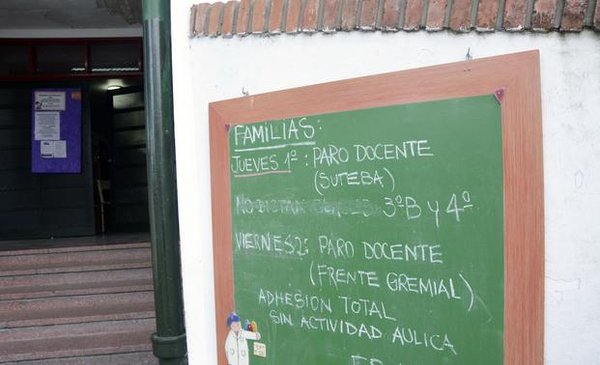 FAMILIAS:
JUEVES 1º: PARO DOCENTE
(SUTEBA)
NO DICTAN 3ºB y 4º
VIERNES 2: PARO DOCENTE
(FRENTE GREMIAL)
ADHESIÓN TOTAL
SIN ACTIVIDAD AULICA